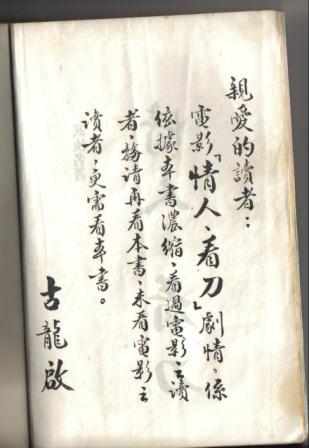 親愛的讀者：
電影『情人、看刀』劇情，係
依據本書濃縮，看過電影之讀
者，務請再看本書，未看電影之
讀者，更需看本書。
古龍啟